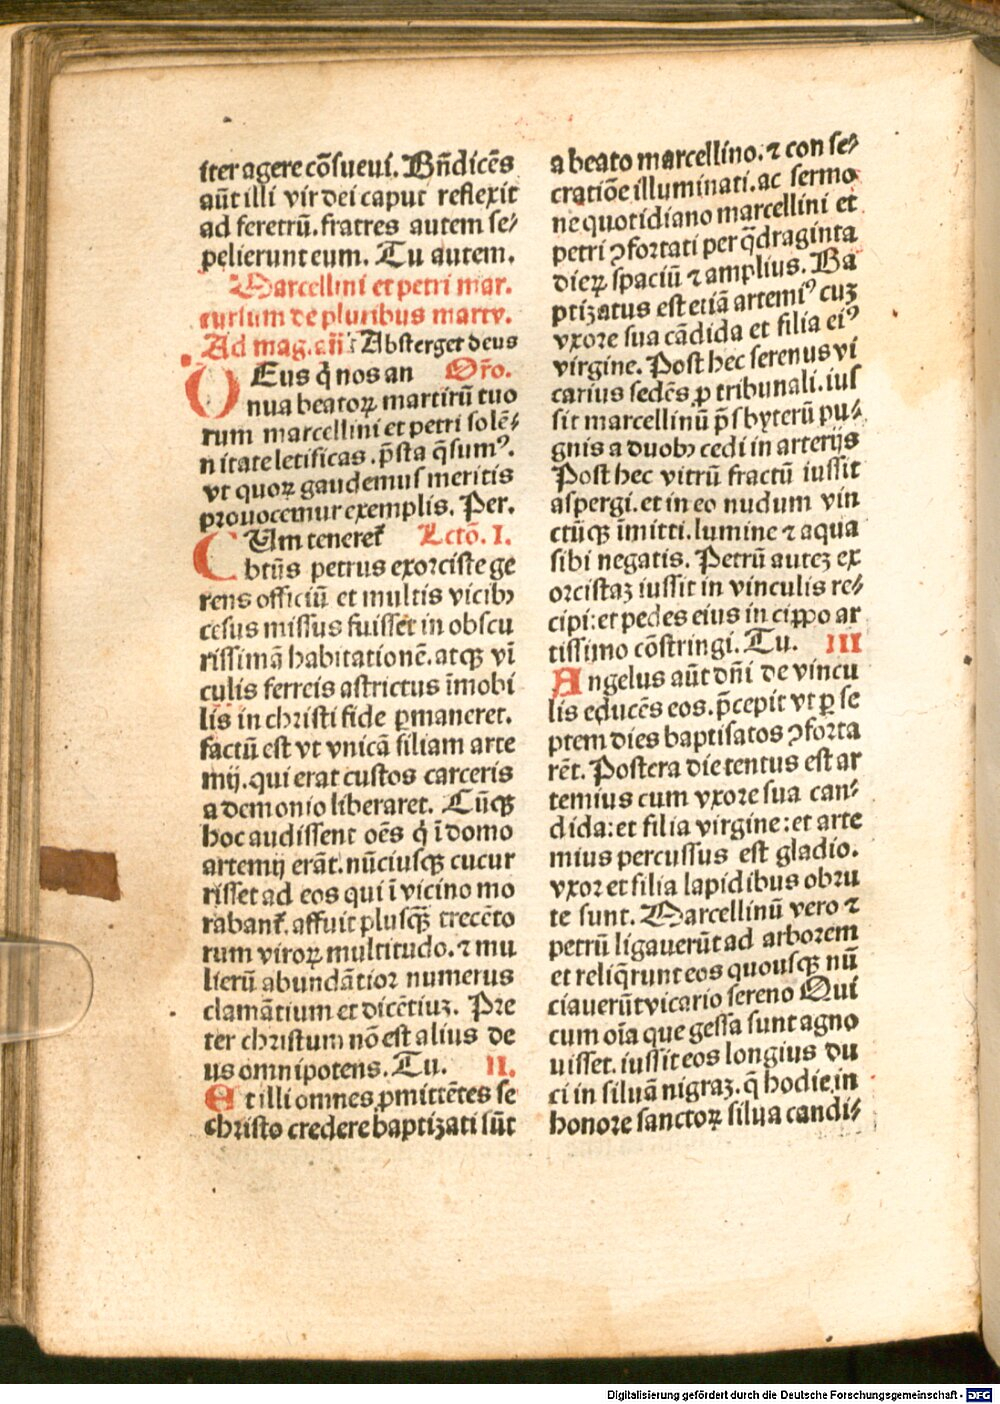 iter agere cōsueui. Bn̄dicēs
aūt illi vir dei caput reflexit
ad feretrū. fratres autem se⸗
pelierunt eum. Tu autem.
Marcellini et petri mar.
cursum de pluribus marty.
Ad mag. an̄ Absterget deus
DEus q̇ nos an Or̄o.
nua beatoꝝ martirū tuo
rum marcellini et petri solē⸗
nitate letificas. p̄sta q̄sumꝰ.
vt quoꝝ gaudemus meritis
prouocemur exemplis. Per.
CUm teneret᷑ Lctō. I.
btūs petrus exorciste ge
rens officiū et multis vicibꝫ
cesus missus fuisset in obscu
rissimā habitationē. atqꝫ vī
culis ferreis astrictus īmobi
lis in christi fide ꝑmaneret.
factū est vt vnicā filiam arte
mij. qui erat custos carceris
a demonio liberaret. Cūqꝫ
hoc audissent oēs q̇ ī domo
artemij erāt. nūciusqꝫ cucur
risset ad eos qui ī vicino mo
rabant᷑. affuit plusqꝫ̄ trecēto
rum viroꝝ multitudo. ⁊ mu
lierū abundātior numerus
clamātium et dicētiuꝫ. Pre
ter christum nō est alius de
us omnipotens. Tu. II.
Et illi omnes ꝓmittētes se
christo credere baptizati sūt
a beato marcellino. ⁊ con se⸗
cratiōe illuminati. ac sermo
ne quotidiano marcellini et
petri ꝯfortati per q̄draginta
dieꝝ spaciū ⁊ amplius. Ba
ptizatus est etiā artemiꝰ cuꝫ
vxore sua cādida et filia eiꝰ
virgine. Post hec serenus vi
carius sedēs ꝓ tribunali. ius
sit marcellinū p̄sbyterū pu⸗
gnis a duobꝫ cedi in arterijs
Post hec vitrū fractū iussit
aspergi. et in eo nudum vin
ctūqꝫ īmitti. lumine ⁊ aqua
sibi negatis. Petrū auteꝫ ex
orcistaꝫ iussit in vinculis re⸗
cipi: et pedes eius in cippo ar
tissimo cōstringi. Tu. III
Angelus aūt dn̄i de vincu
lis educēs eos. p̄cepit vt ꝑ se
ptem dies baptisatos ꝯforta
rēt. Postera die tentus est ar
temius cum vxore sua can⸗
dida: et filia virgine: et arte
mius percussus est gladio.
vxor et filia lapidibus obru
te sunt. Marcellinū vero ⁊
petrū ligauerūt ad arborem
et reliq̄runt eos quousqꝫ nū
ciauerūt vicario sereno Qui
cum oīa que gessa sunt agno
uisset. iussit eos longius du
ci in siluā nigraꝫ. q̄ hodie in
honore sanctoꝝ silua candi⸗
Digitalisierung gefördert durch die Deutsche Forschungsgemeinschaft - DFG